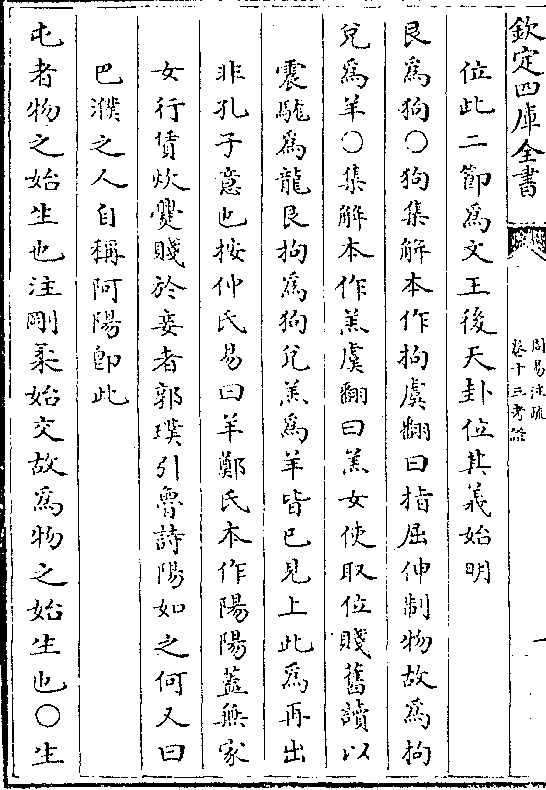 欽定四庫全書
周易注疏
卷十三考證
一
位此二節為文王後天卦位其義始明
艮為狗○狗集解本作拘虞翻曰指屈伸制物故為拘
兌為羊○集解本作羔虞翻曰羔女使取位賤舊讀以
震駹為龍艮拘為狗兌羔為羊皆已見上此為再出
非孔子意也按仲氏易曰羊鄭氏本作陽陽蓋無家
女行賃炊爨賤於妾者郭璞引魯詩陽如之何又曰
巴濮之人自稱阿陽即此
屯者物之始生也注剛柔始交故為物之始生也○生